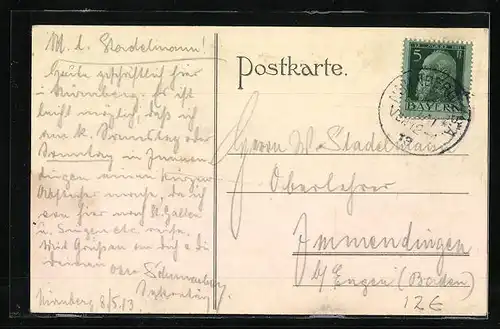 M. l. Stadelmann!
Heute geschäftlich hier
in Nürnberg. Es ist
leicht möglich, daß ich
am k. Samstag oder
Sonntag in Immen-
dingen einen kurzen
mache, da ich
von hier nach St. Gallen
u. Singen etc. reise.
Mit Grüßen an dich & die
deinen
Nürnberg 8/5.13.
Postkarte.
5
BAYERN
NÜRNBERG
Herrn W. Stadelmann
Oberlehrer
Immendingen
b/ Engen (Baden)
12€